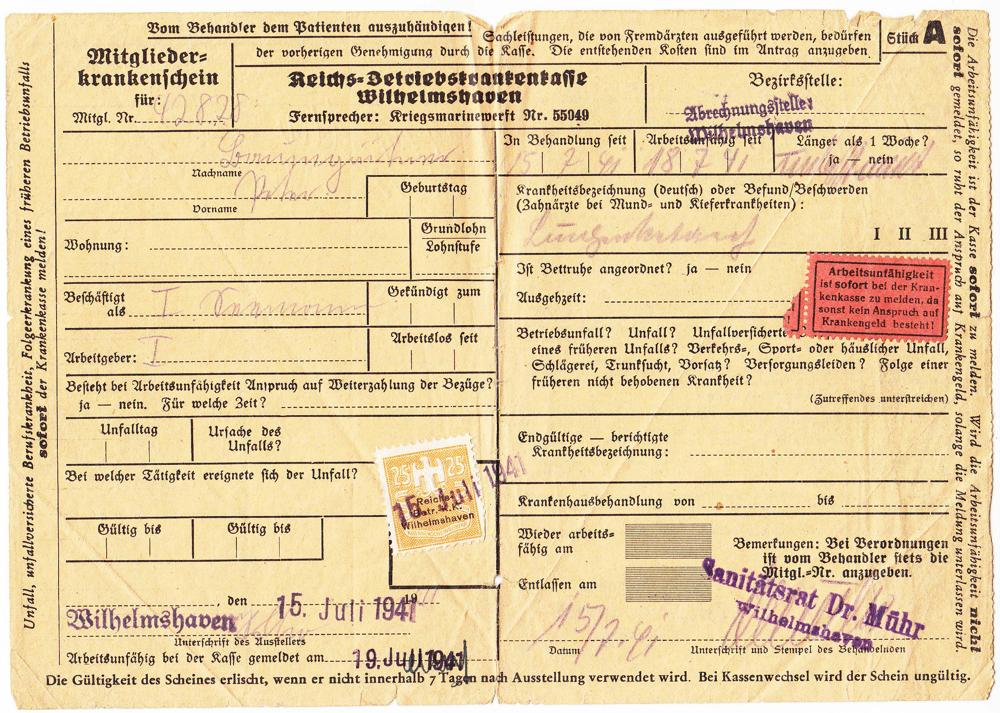 Vom Behandler dem Patienten auszuhändigen!
Sachleistungen, die von Fremdärzten ausgeführt werden, bedürfen
der vorherigen Genehmigung durch die Kasse. Die entstehenden Kosten sind im Antrag anzugeben
Stück A
Mitglieder-
krankenschein
für:
Mitgl. Nr. 42828
Reichs-Betriebskrankenkasse
Wilhelmshaven
Fernsprecher: Kriegsmarinewerft Nr. 55049
Bezirksstelle:
Abrechnungsstelle:
Wilhelmshaven
Nachname
Peter
Vorname
Geburtstag
Wohnung:
Grundlohn
Lohnstufe
Beschäftigt
als I Seemann
Gekündigt zum
Arbeitgeber: I
Arbeitslos seit
Besteht bei Arbeitsunfähigkeit Anspruch auf Weiterzahlung der Bezüge?
ja — nein. Für welche Zeit?
Unfalltag
Ursache des
Unfalls?
Bei welcher Tätigkeit ereignete sich der Unfall?
Gültig bis
Gültig bis
25 25
Reichs-
Betr. K.K.
Wilhelmshaven
15. Juli 1941
, den 15. Juli 1941 19
Wilhelmshaven
Unterschrift des Ausstellers
Arbeitsunfähig bei der Kasse gemeldet am 19. Juli 1941
In Behandlung seit
15 7 41
Arbeitsunfähig seit
18 7 41
Länger als 1 Woche?
ja — nein
Krankheitsbezeichnung (deutsch) oder Befund/Beschwerden
(Zahnärzte bei Mund- und Kieferkrankheiten):
I II III
Ist Bettruhe angeordnet? ja — nein
Ausgehzeit:
Arbeitsunfähigkeit
ist sofort bei der Kran-
kenkasse zu melden, da
sonst kein Anspruch auf
Krankengeld besteht!
Betriebsunfall? Unfall? Unfallversicherte
eines früheren Unfalls? Verkehrs-, Sport- oder häuslicher Unfall,
Schlägerei, Trunksucht, Vorsatz? Versorgungsleiden? Folge einer
früheren nicht behobenen Krankheit?
(Zutreffendes unterstreichen)
Endgültige — berichtigte
Krankheitsbezeichnung:
Krankenhausbehandlung von bis
Wieder arbeits-
fähig am
Entlassen am
Bemerkungen: Bei Verordnungen
ist vom Behandler stets die
Mitgl.-Nr. anzugeben.
Sanitätsrat Dr. Mühr
Wilhelmshaven
15/7. 41
Datum
Unterschrift und Stempel des Behandelnden
Die Gültigkeit des Scheines erlischt, wenn er nicht innerhalb 7 Tagen nach Ausstellung verwendet wird. Bei Kassenwechsel wird der Schein ungültig.
Unfall, unfallversicherte Berufskrankheit, Folgeerkrankung eines früheren Betriebsunfalls
sofort der Krankenkasse melden!
Die Arbeitsunfähigkeit ist der Kasse sofort zu melden. Wird die Arbeitsunfähigkeit nicht
sofort gemeldet, so ruht der Anspruch auf Krankengeld, solange die Meldung unterlassen wird.